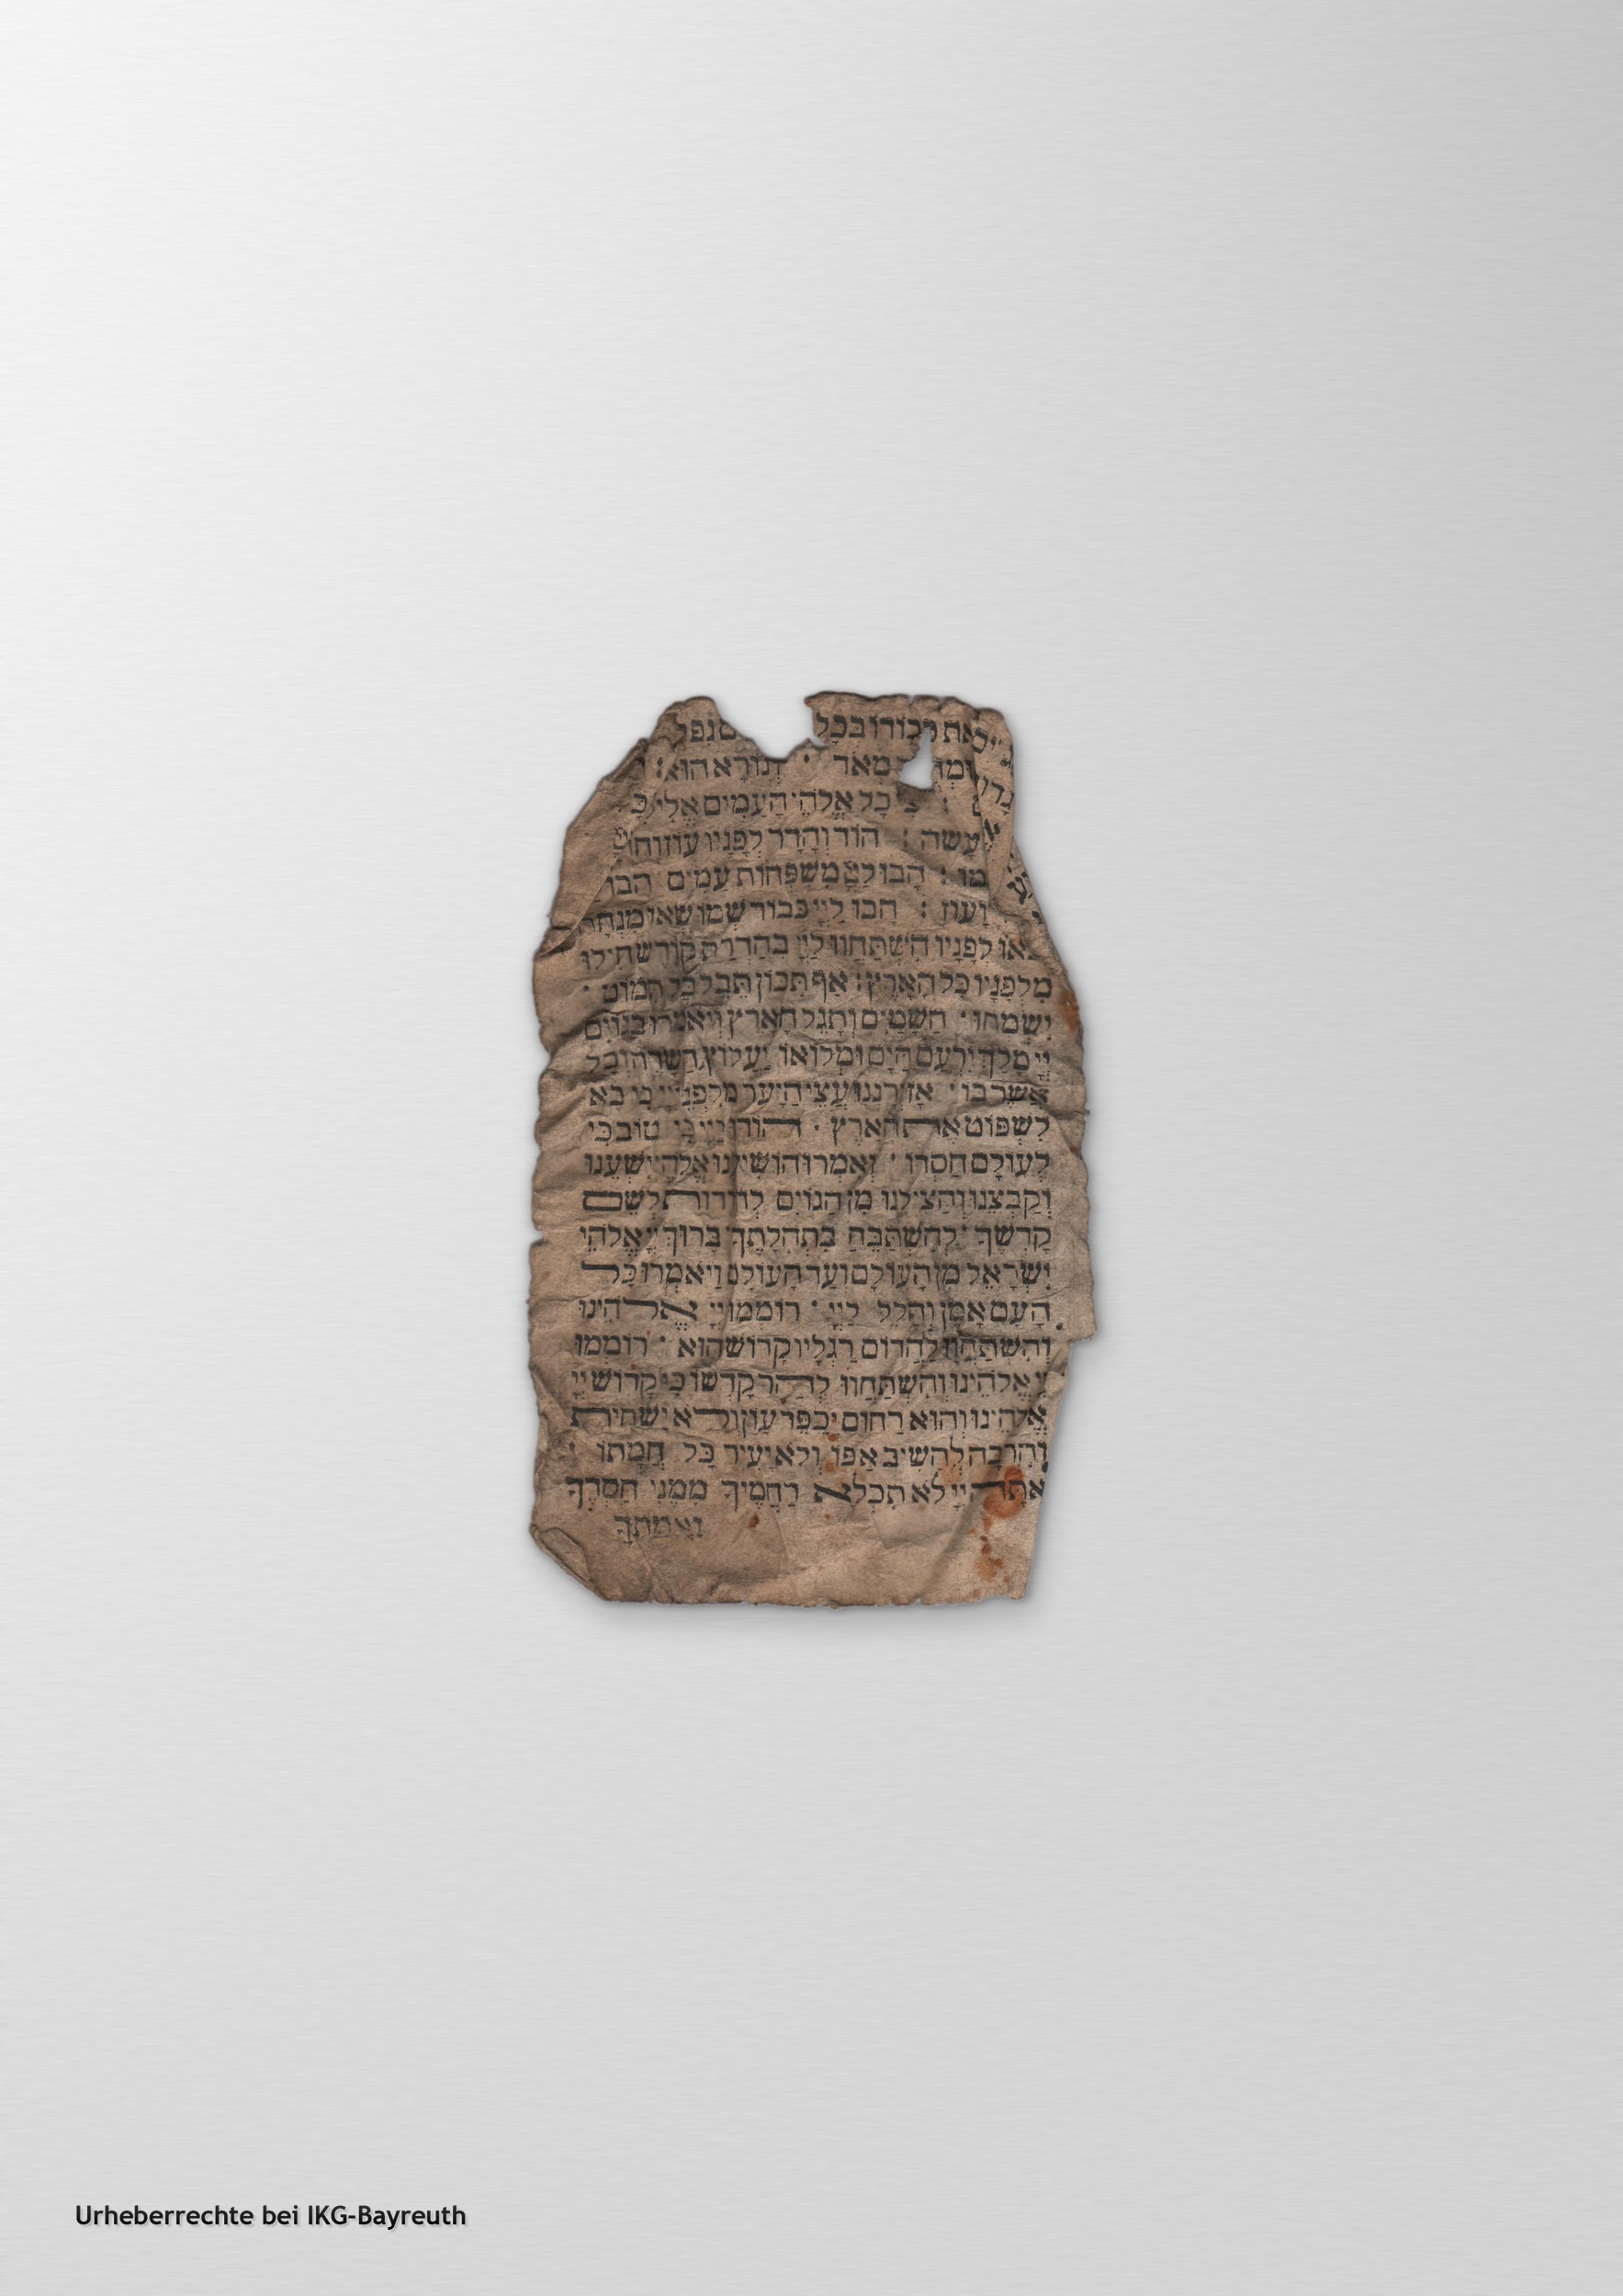 את כבורו בכל נפל
מאד ונורא הוא :
כל אֱלֹהֵי הָעַמִים אֱלִי
עשה : הוד וְהָדָר לְפָנָיו עוז וח
מו : הָבוּ לַיְיָ מִשְׁפְּחוֹת עַמִים הבו
ועוז : הבו לַיְיָ כבוד שמו שאו מנחה
לְפָנָיו הִשְׁתַּחֲווּ לַיְיָ בהדרת קודש חילו
מִלְּפָנָיו כל הָאָרֶץ : אַף תִּכּוֹן תֵּבֵל בל תִמּוֹט ·
ישמחו · השמים וְתָגֵל הארץ ויאמרו בגוים
יְיָ מלך ירעם הַיָּם וּמלואו יַעֲלוץ השדה וכל
אשר בו · אָז ירננו עֲצֵי היער מלפני יְיָ כי בא
לִשְׁפּוֹט את הארץ · הודו לַיְיָ כִּי טוב כִּי
לעולם חסדו · וְאִמְרוּ הושיענו אלהי ישענו
וְקַבְּצֵנוּ וְהצילנו מִן הגוים לְהודות לְשֵׁם
קָדְשֶׁךָ · לְהִשְׁתַּבֵּחַ בִּתְהִלָּתֶךָ בָּרוּךְ יְיָ אֱלֹהֵי
יִשְׂרָאֵל מן הָעוֹלָם ועד הָעוֹלָם וַיֹּאמְרוּ כָּל
הָעָם אָמֵן וְהַלֵּל לַיְיָ · רוממו יְיָ אֱלֹהֵינוּ
וְהִשְׁתַּחֲווּ לַהֲדוֹם רַגְלָיו קָדוֹשׁ הוא · רוֹמְמוּ
יְיָ אֱלֹהֵינוּ וְהִשְׁתַּחֲווּ לְהַר קָדְשׁוֹ כִּי קָדוֹשׁ יְיָ
אֱלֹהֵינוּ וְהוּא רַחוּם יְכַפֵּר עָוֹן וְלֹא יַשְׁחִית
וְהִרְבָּה לְהָשִׁיב אַפּוֹ וְלֹא יָעִיר כָּל חֲמָתוֹ :
אַתָּה יְיָ לֹא תִכְלָא רַחֲמֶיךָ מִמֶּנִּי חַסְדְּךָ
וַאֲמִתְּךָ
Urheberrechte bei IKG-Bayreuth